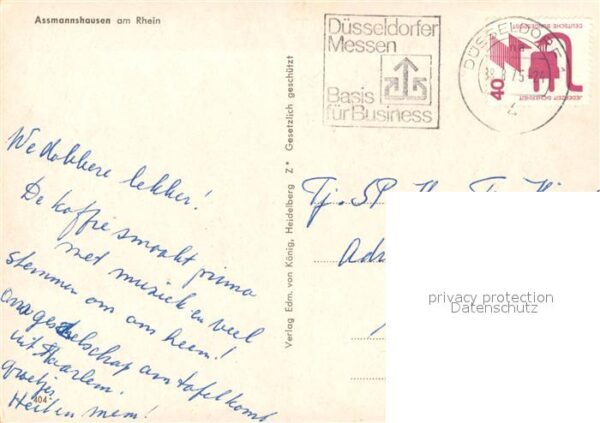 Assmannshausen am Rhein
Düsseldorfer
Messen
Basis
für Business
DÜSSELDORF
DEUTSCHE BUNDESPOST
JEDERZEIT SICHERHEIT
40
We dobbere lekker!
De koffie smaakt prima
met muziek en veel
stemmen om ons heen!
ons gezelschap aan tafel komt
uit Haarlem.
Groetjes
Heit en mem!
404
Verlag Edm. von König, Heidelberg Z* Gesetzlich geschützt
Tj. SP
privacy protection
Datenschutz